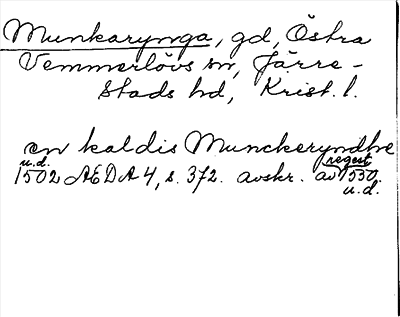 Munkarynga, gd, Östra
Vemmerlövs sn, Järre-
stads hd, Krist. l.
en kaldis Munckeryndhe
u.d. regest
1502 AEDA 4, s. 372. avskr. av 1550.
u.d.